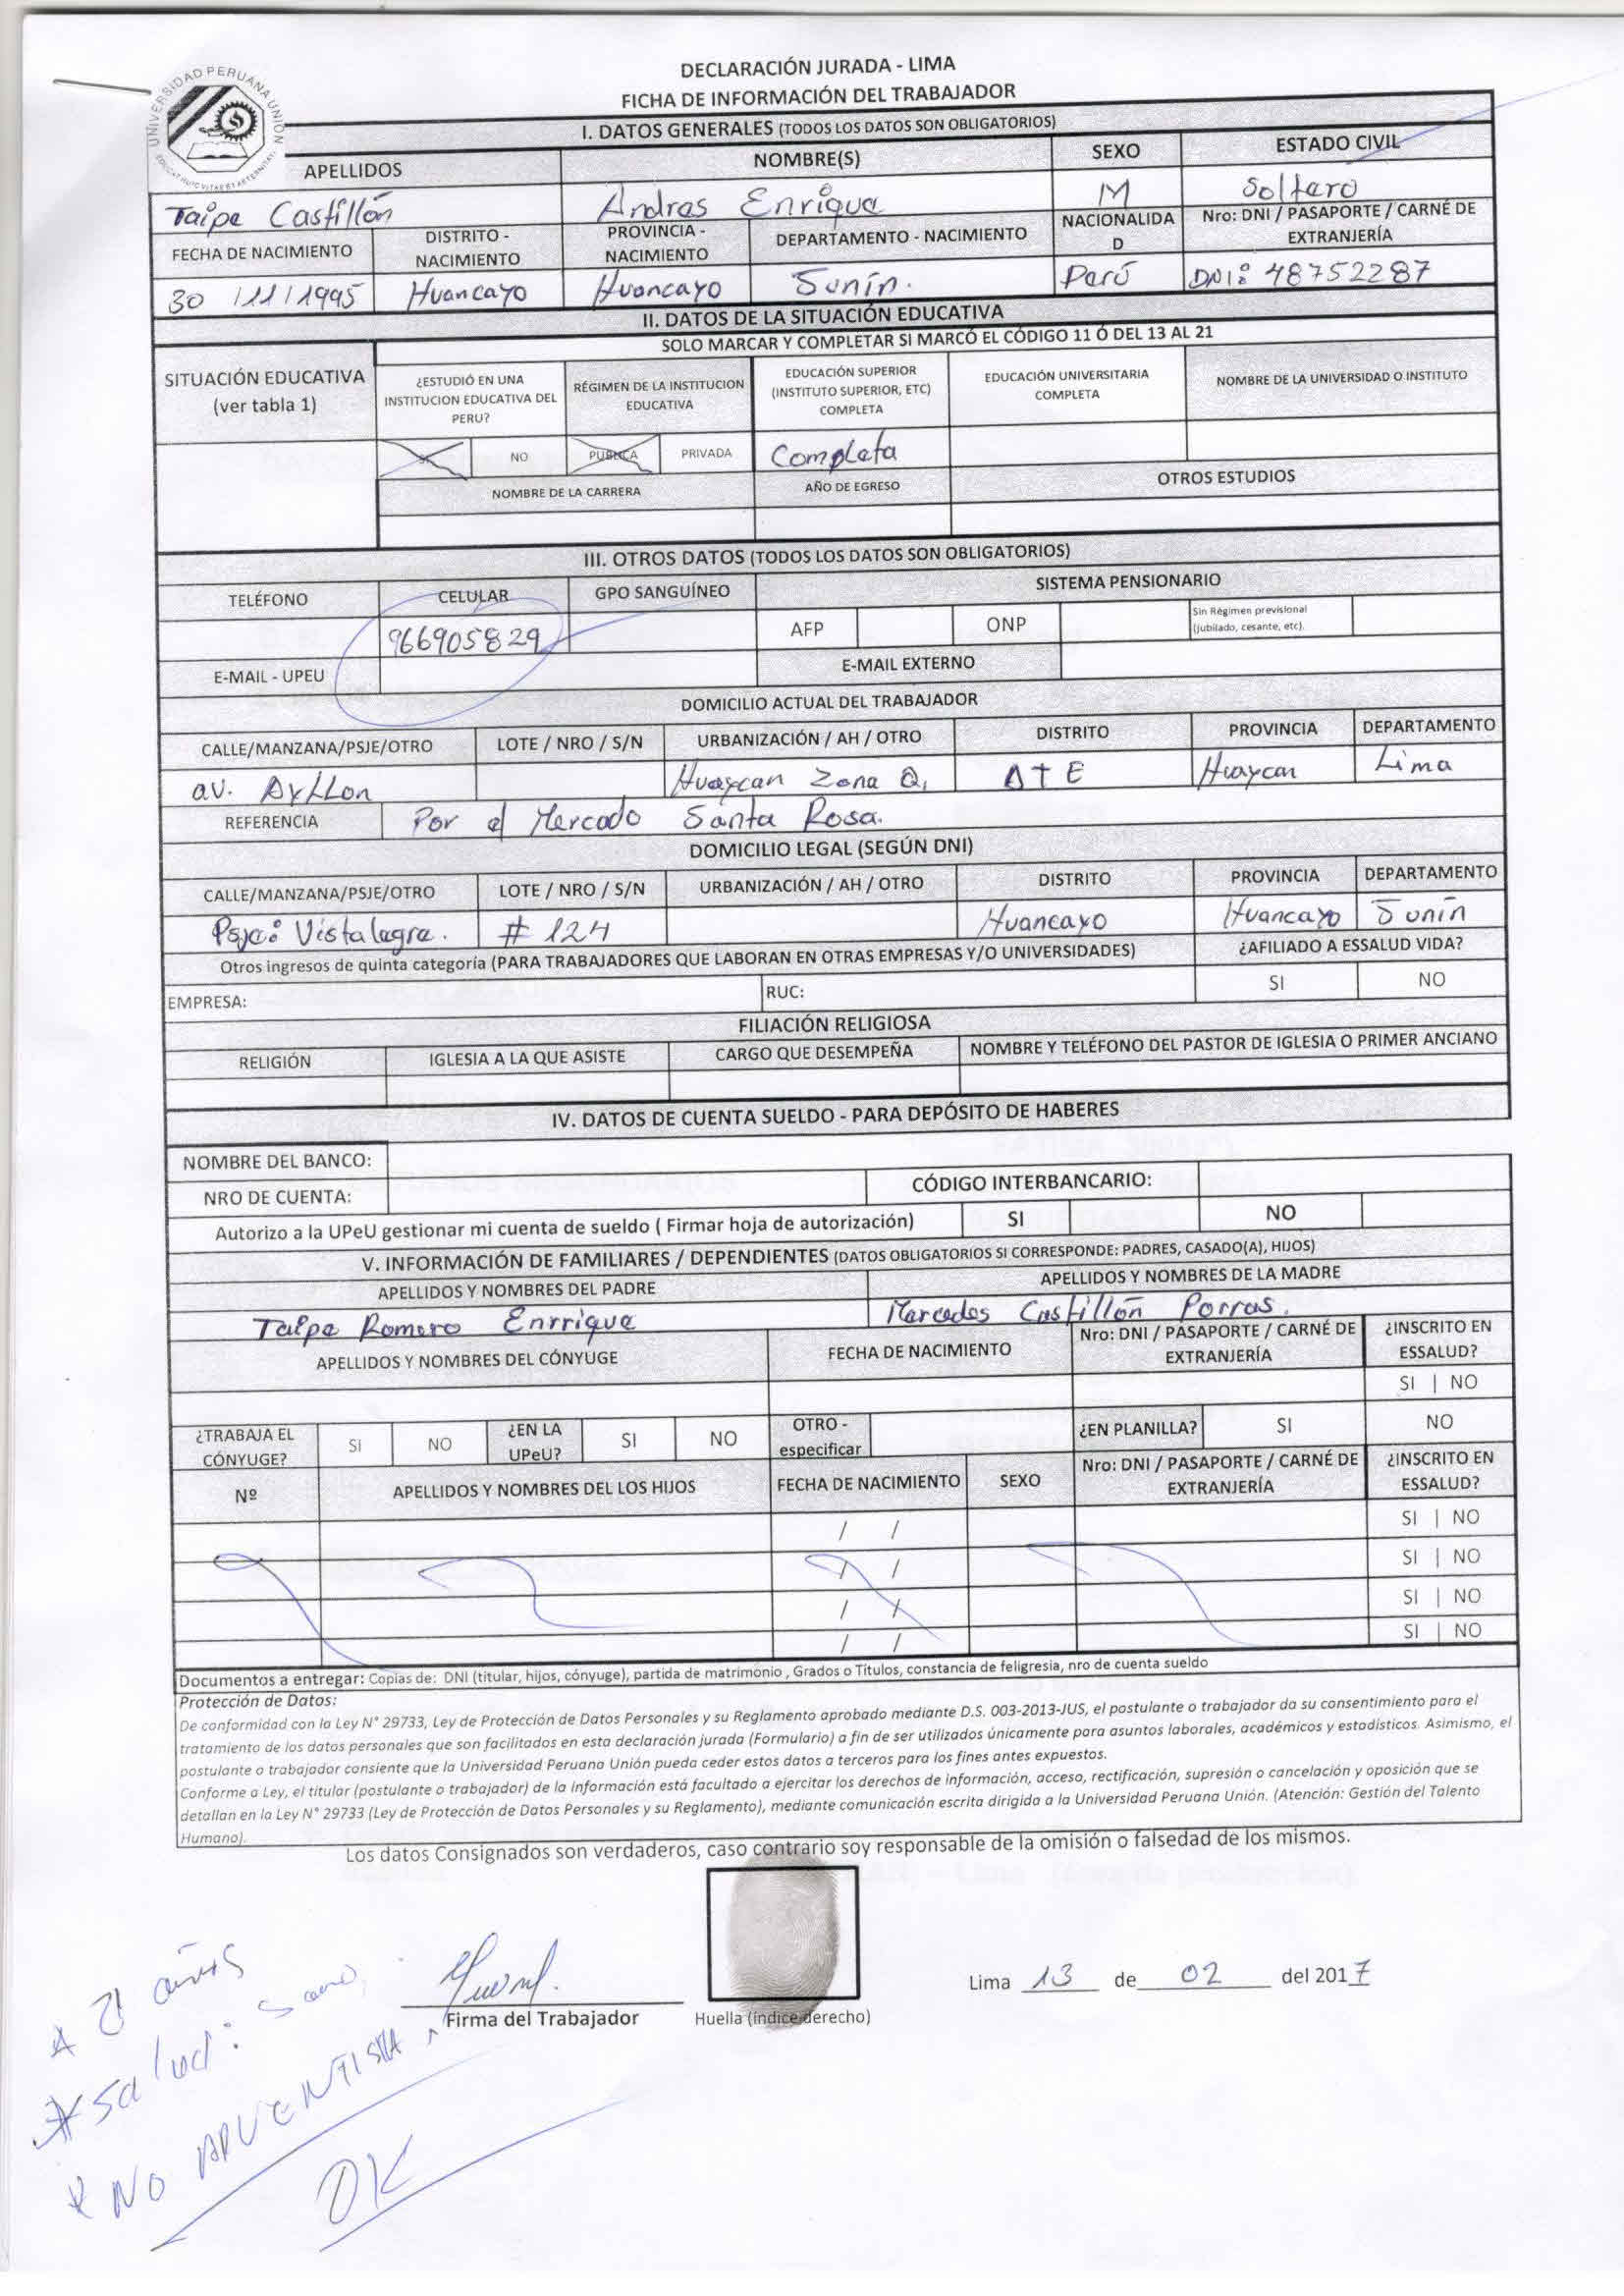 DECLARACIÓN JURADA - LIMA
FICHA DE INFORMACIÓN DEL TRABAJADOR
UNIVERSIDAD PERUANA UNIÓN
I. DATOS GENERALES (TODOS LOS DATOS SON OBLIGATORIOS)
APELLIDOS NOMBRE(S) SEXO ESTADO CIVIL
Taipe Castillón Andras Enrique M Soltero
FECHA DE NACIMIENTO DISTRITO - NACIMIENTO PROVINCIA - NACIMIENTO DEPARTAMENTO - NACIMIENTO NACIONALIDA D Nro: DNI / PASAPORTE / CARNÉ DE EXTRANJERÍA
30 /11/1995 Huancayo Huancayo Junín. Perú DNI: 48752287
II. DATOS DE LA SITUACIÓN EDUCATIVA
SOLO MARCAR Y COMPLETAR SI MARCÓ EL CÓDIGO 11 Ó DEL 13 AL 21
SITUACIÓN EDUCATIVA (ver tabla 1) ¿ESTUDIÓ EN UNA INSTITUCION EDUCATIVA DEL PERU? RÉGIMEN DE LA INSTITUCION EDUCATIVA EDUCACIÓN SUPERIOR (INSTITUTO SUPERIOR, ETC) COMPLETA EDUCACIÓN UNIVERSITARIA COMPLETA NOMBRE DE LA UNIVERSIDAD O INSTITUTO
NO PUBLICA PRIVADA Completa
NOMBRE DE LA CARRERA AÑO DE EGRESO OTROS ESTUDIOS
III. OTROS DATOS (TODOS LOS DATOS SON OBLIGATORIOS)
TELÉFONO CELULAR GPO SANGUÍNEO SISTEMA PENSIONARIO
966905829 AFP ONP Sin Règimen previsional (jubilado, cesante, etc).
E-MAIL - UPEU E-MAIL EXTERNO
DOMICILIO ACTUAL DEL TRABAJADOR
CALLE/MANZANA/PSJE/OTRO LOTE / NRO / S/N URBANIZACIÓN / AH / OTRO DISTRITO PROVINCIA DEPARTAMENTO
av. Ayllon Huaycan Zona Q. ATE Huaycan Lima
REFERENCIA Por el Mercado Santa Rosa.
DOMICILIO LEGAL (SEGÚN DNI)
CALLE/MANZANA/PSJE/OTRO LOTE / NRO / S/N URBANIZACIÓN / AH / OTRO DISTRITO PROVINCIA DEPARTAMENTO
Psje: Vistalegre. # 124 Huancayo Huancayo Junín
Otros ingresos de quinta categoría (PARA TRABAJADORES QUE LABORAN EN OTRAS EMPRESAS Y/O UNIVERSIDADES) ¿AFILIADO A ESSALUD VIDA?
EMPRESA: RUC: SI NO
FILIACIÓN RELIGIOSA
RELIGIÓN IGLESIA A LA QUE ASISTE CARGO QUE DESEMPEÑA NOMBRE Y TELÉFONO DEL PASTOR DE IGLESIA O PRIMER ANCIANO
IV. DATOS DE CUENTA SUELDO - PARA DEPÓSITO DE HABERES
NOMBRE DEL BANCO:
NRO DE CUENTA: CÓDIGO INTERBANCARIO:
Autorizo a la UPeU gestionar mi cuenta de sueldo ( Firmar hoja de autorización) SI NO
V. INFORMACIÓN DE FAMILIARES / DEPENDIENTES (DATOS OBLIGATORIOS SI CORRESPONDE: PADRES, CASADO(A), HIJOS)
APELLIDOS Y NOMBRES DEL PADRE APELLIDOS Y NOMBRES DE LA MADRE
Taipe Romero Enrrique Mercedes Castillón Porras.
APELLIDOS Y NOMBRES DEL CÓNYUGE FECHA DE NACIMIENTO Nro: DNI / PASAPORTE / CARNÉ DE EXTRANJERÍA ¿INSCRITO EN ESSALUD?
SI | NO
¿TRABAJA EL CÓNYUGE? SI NO ¿EN LA UPeU? SI NO OTRO - especificar ¿EN PLANILLA? SI NO
Nº APELLIDOS Y NOMBRES DEL LOS HIJOS FECHA DE NACIMIENTO SEXO Nro: DNI / PASAPORTE / CARNÉ DE EXTRANJERÍA ¿INSCRITO EN ESSALUD?
/ / SI | NO
/ / SI | NO
/ / SI | NO
/ / SI | NO
Documentos a entregar: Copias de: DNI (titular, hijos, cónyuge), partida de matrimonio , Grados o Títulos, constancia de feligresia, nro de cuenta sueldo
Protección de Datos:
De conformidad con la Ley N° 29733, Ley de Protección de Datos Personales y su Reglamento aprobado mediante D.S. 003-2013-JUS, el postulante o trabajador da su consentimiento para el
tratamiento de los datos personales que son facilitados en esta declaración jurada (Formulario) a fin de ser utilizados únicamente para asuntos laborales, académicos y estadísticos. Asimismo, el
postulante o trabajador consiente que la Universidad Peruana Unión pueda ceder estos datos a terceros para los fines antes expuestos.
Conforme a Ley, el titular (postulante o trabajador) de la información está facultado a ejercitar los derechos de información, acceso, rectificación, supresión o cancelación y oposición que se
detallan en la Ley N° 29733 (Ley de Protección de Datos Personales y su Reglamento), mediante comunicación escrita dirigida a la Universidad Peruana Unión. (Atención: Gestión del Talento
Humano).
Los datos Consignados son verdaderos, caso contrario soy responsable de la omisión o falsedad de los mismos.
Lima 13 de 02 del 2017
Firma del Trabajador Huella (índice derecho)
21 años
* salud: sano,
* NO ADVENTISTA
OK